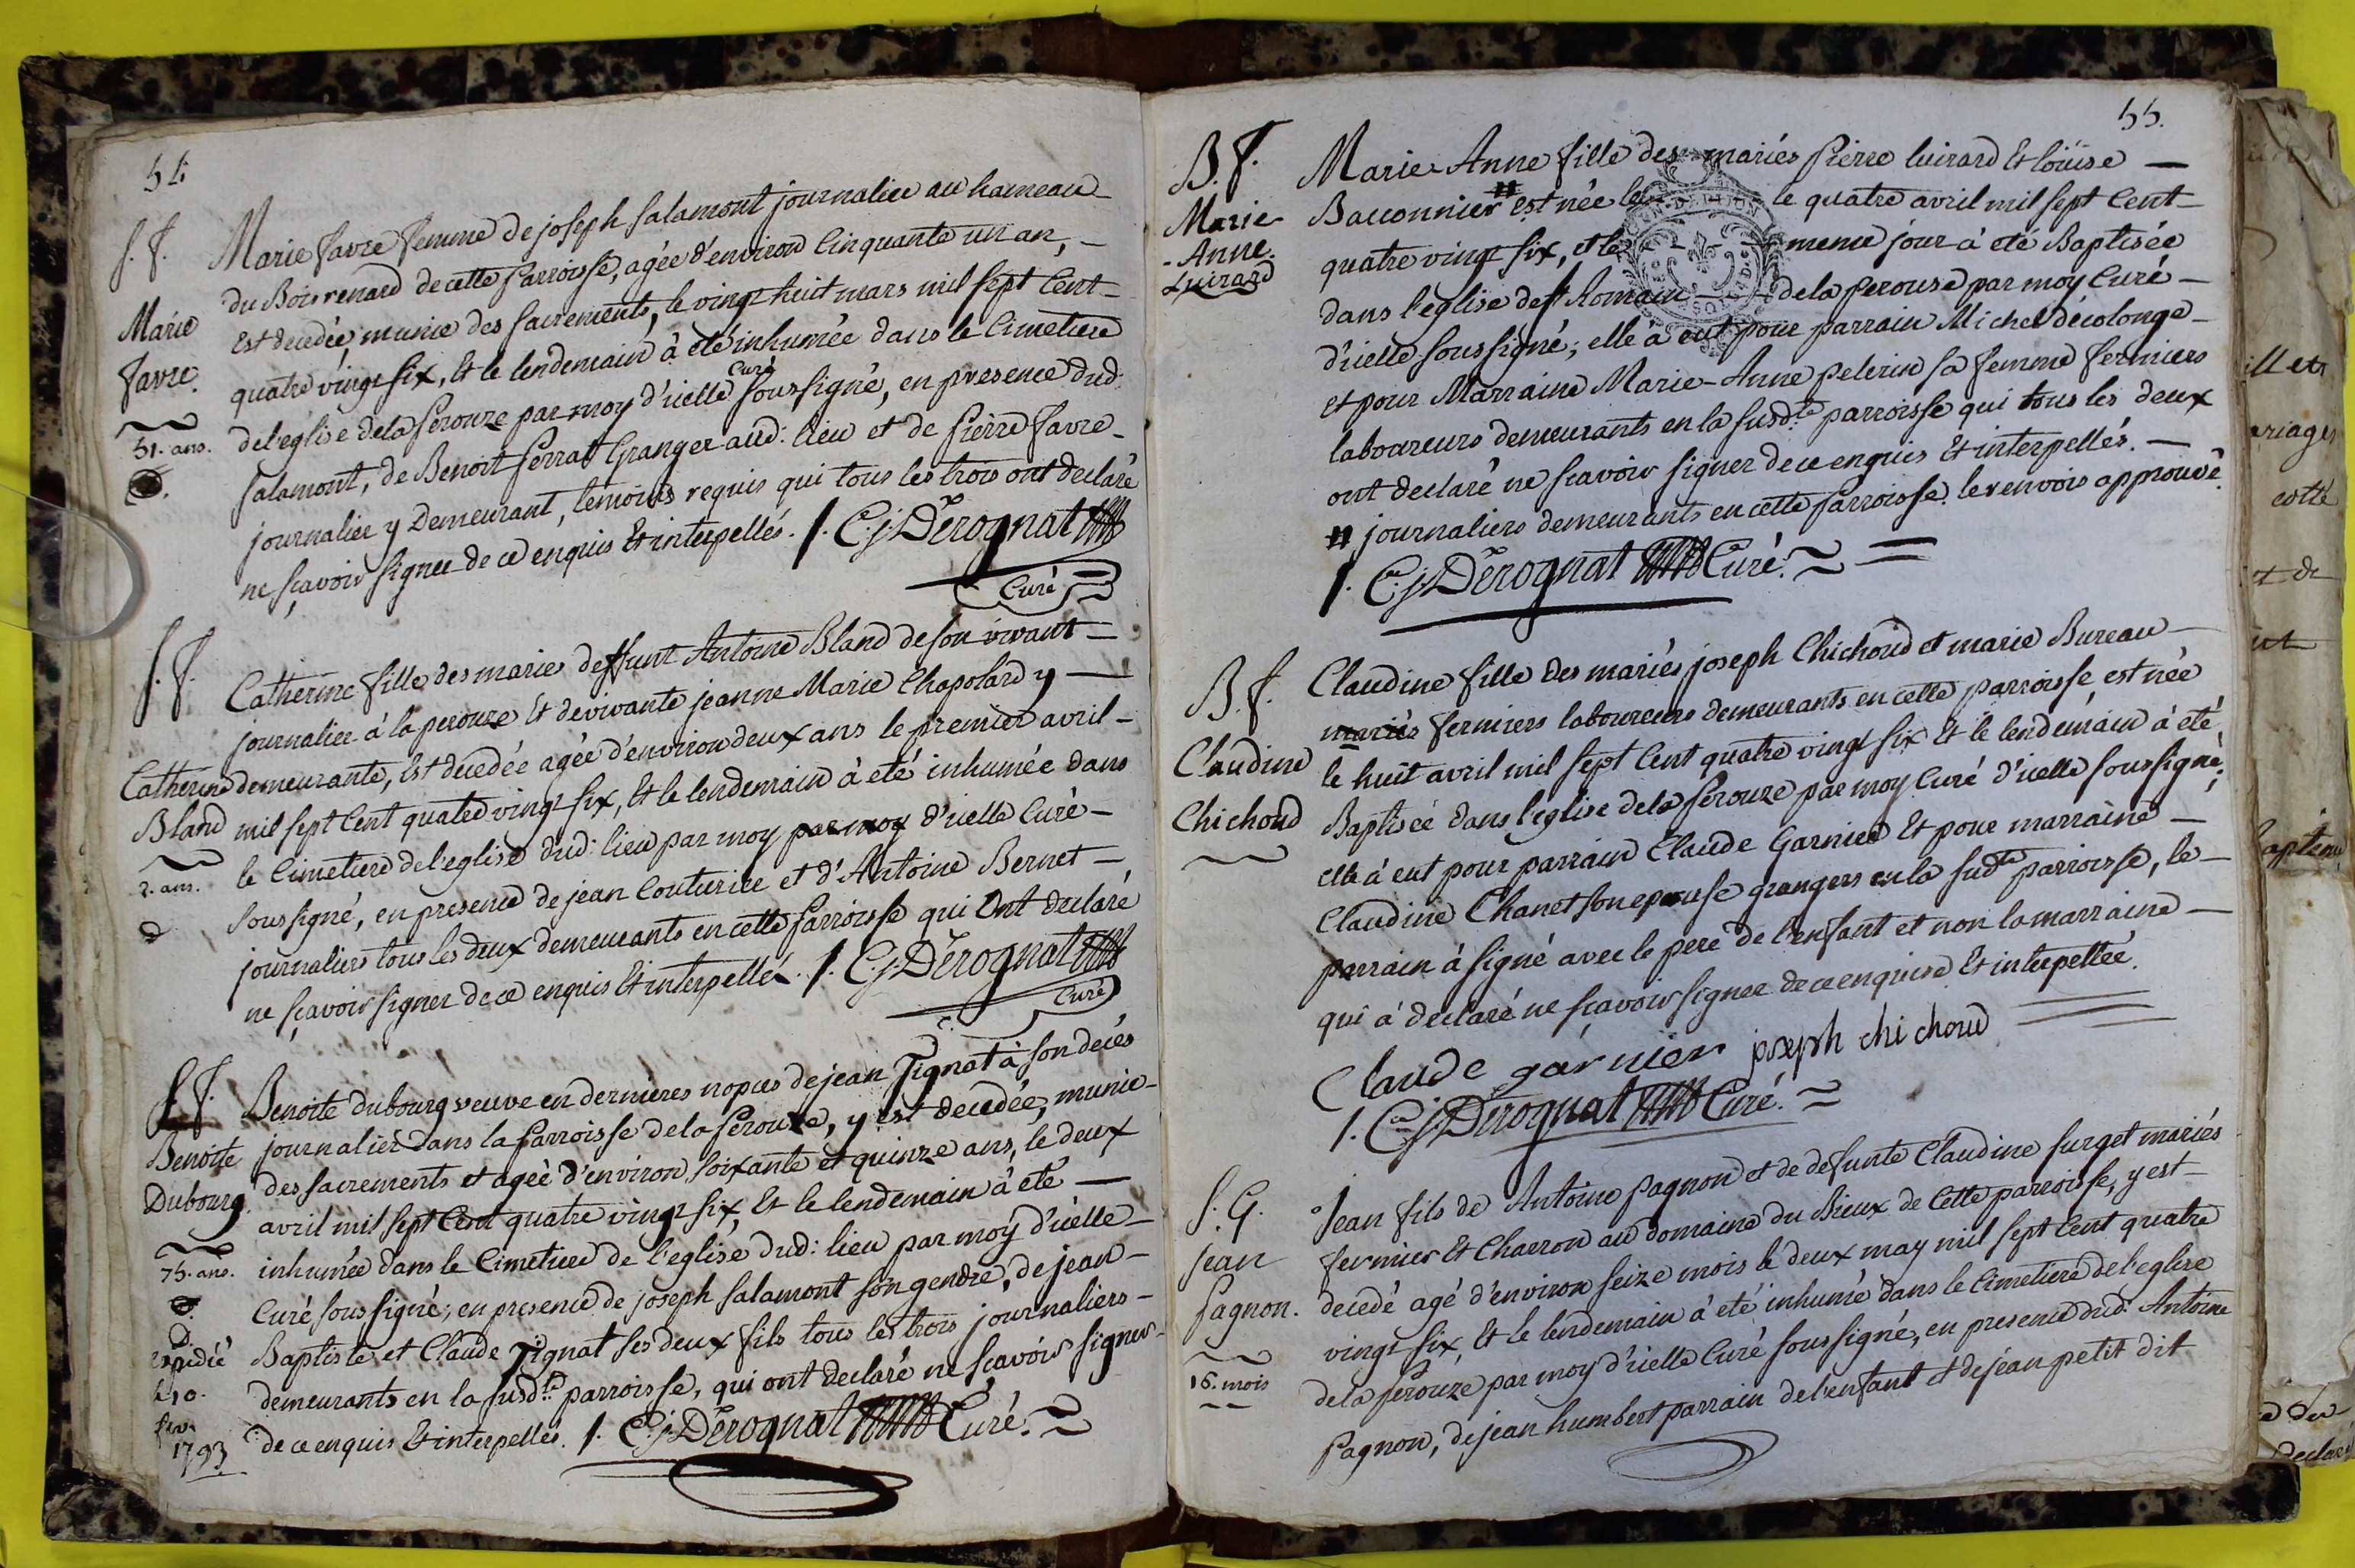 54.
S. F.
Marie
favre.
51. ans.
Marie favre femme de joseph salamont journalier au hameau
du Bois renard de cette Parroisse, agée d'environ Cinquante un an, –
Est decedée munie des sacrements, le vingt huit mars mil sept Cent –
quatre vingt six, Et le lendemain à eté inhumée dans le Cimetiere
de l'eglise dela Perouze par moy d'icelle Curé soussigné, en presence dud:
salamont, de Benoit Perrat Granger aud: lieu et de Pierre favre –
journalier y Demeurant, temoins requis qui tous les trois ont declaré
ne sçavoir signer de ce enquis Et interpellés. /. C. j. Derognat
Curé
S. F.
Catherine
Bland
2. ans.
d
Catherine fille des mariés deffunt Antoine Bland de son vivant –
journalier à la perouze Et de vivante jeanne Marie Chapolard y –
demeurante, Est decedée agée d'environ deux ans le premier avril –
mil sept Cent quatre vingt six, Et le lendemain à eté inhumée dans
le Cimetiere de l'eglise dud: lieu par moy par moy d'icelle Curé –
soussigné, en presence de jean Couturier et d'Antoine Bernet –
journaliers tous les deux demeurants en cette Parroisse qui Ont declaré
ne sçavoir signer de ce enquis Et interpellés. /. C. j. Derognat
Curé
S. F.
Benoite
Dubourg.
75. ans.
d.
expidié
le 10.
1793
Benoite dubourg veuve en dernieres nopces de jean Tignat à son decés
journalier dans la Parroisse dela Perouze, y est decedée, munie –
des sacrements et agée d'environ soixante et quinze ans, le deux
avril mil sept Cent quatre vingt six, Et le lendemain à eté –
inhumée dans le Cimetiere de l'eglise dud: lieu par moy d'icelle –
Curé soussigné, en presence de joseph salamont son gendre, de jean –
Baptiste et Claude Tignat ses deux fils tous les trois journaliers –
demeurants en la susd.te parroisse, qui ont declaré ne sçavoir signer –
de ce enquis Et interpellés. /. C. j. Derognat Curé.
55.
B. F.
Marie
- Anne.
Luirard
Marie-Anne fille des mariés Pierre luirard Et loüise –
Bauonnier " est née le le quatre avril mil sept Cent –
quatre vingt six, et le meme jour à eté Baptisée
dans l'eglise de st Romain de la perouse par moy Curé –
d'icelle soussigné; elle à eut pour parrain Michel décolonge –
et pour Marraine Marie-Anne pelerin sa femme fermiers
laboureurs demeurants en la susd.te parroisse qui tous les deux
ont declaré ne sçavoir signer de ce enquis Et interpellés. –
" journaliers demeurants en cette Parroisse. le renvois approuvé.
/. C. j. Derognat Curé.
B. f.
Claudine
Chichoud
Claudine fille des mariés joseph Chichoud et marie Bureau –
mariés fermiers laboureurs demeurants en cette parroisse, est née
le huit avril mil sept Cent quatre vingt six Et le lendemain à eté
Baptisée dans l'eglise dela Perouze par moy Curé d'icelle soussigné;
elle à eut pour parrain Claude Garnier Et pour marraine –
Claudine Chanet son epouse grangers en la sud.te parroisse, le –
parrain à signé avec le pere de l'enfant et non la marraine –
qui à declaré ne sçavoir signer de ce enquise Et interpellée.
Claude garnier joseph chichoud
/. C. j. Derognat Curé.
S. G.
jean
Pagnon.
16. mois
Jean fils de Antoine pagnon et de defunte Claudine surget mariés
fermier Et Charron au domaine du Bieux de Cette parroisse, y est –
decedé agé d'environ seize mois le deux may mil sept Cent quatre
vingt six, Et le lendemain à eté inhumé dans le Cimetiere de l'eglese
dela perouze par moy d'icelle Curé soussigné, en presence dud: Antoine
Pagnon, de jean humbert parrain de l'enfant et de jean petit dit